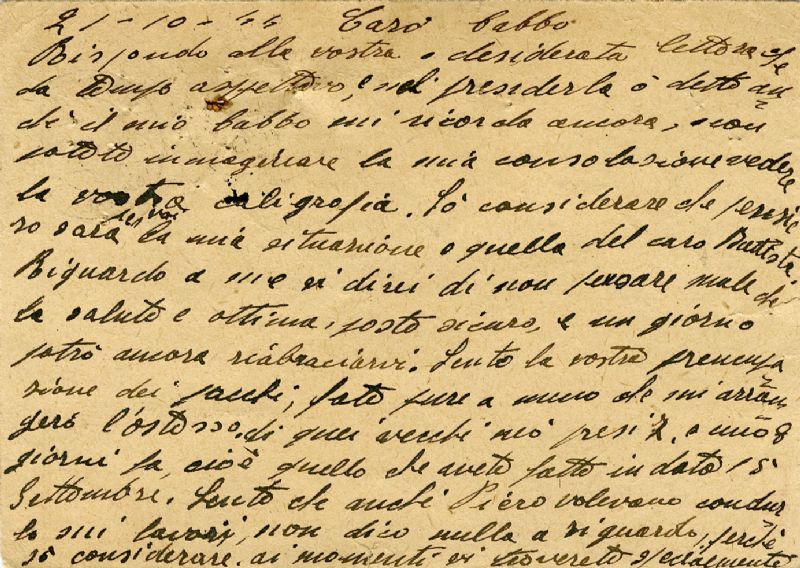 21-10-44 Caro babbo
Rispondo alla vostra e desiderata lettera che
da Dmpo aspettavo, e nel prenderla ò detto an
che il mio babbo mi ricorda ancora, non
potete inmaginare la mia consolasione vedere
la vostra caligrofia. Sò considerare che pensie
ro sarà per voi la mia situazzione e quella del caro Battista
Riguardo a me vi direi di non pensare male di
la salute e ottima, posto sicuro, e un giorno
potrò ancora riabraciarvi. Sento la vostra
sione dei pacchi, fate pure a meno che mi arran
gerò l'ostesso. di quei vecchi nò presi 2, e uno 8
giorni fa, cioè quello che avete fatto in data 15
Settombre. Sento che anchi Piero volevano condur
lo mi lavori, non dico nulla a riguardo, perché
sò considerare. ai momenti vi troverete